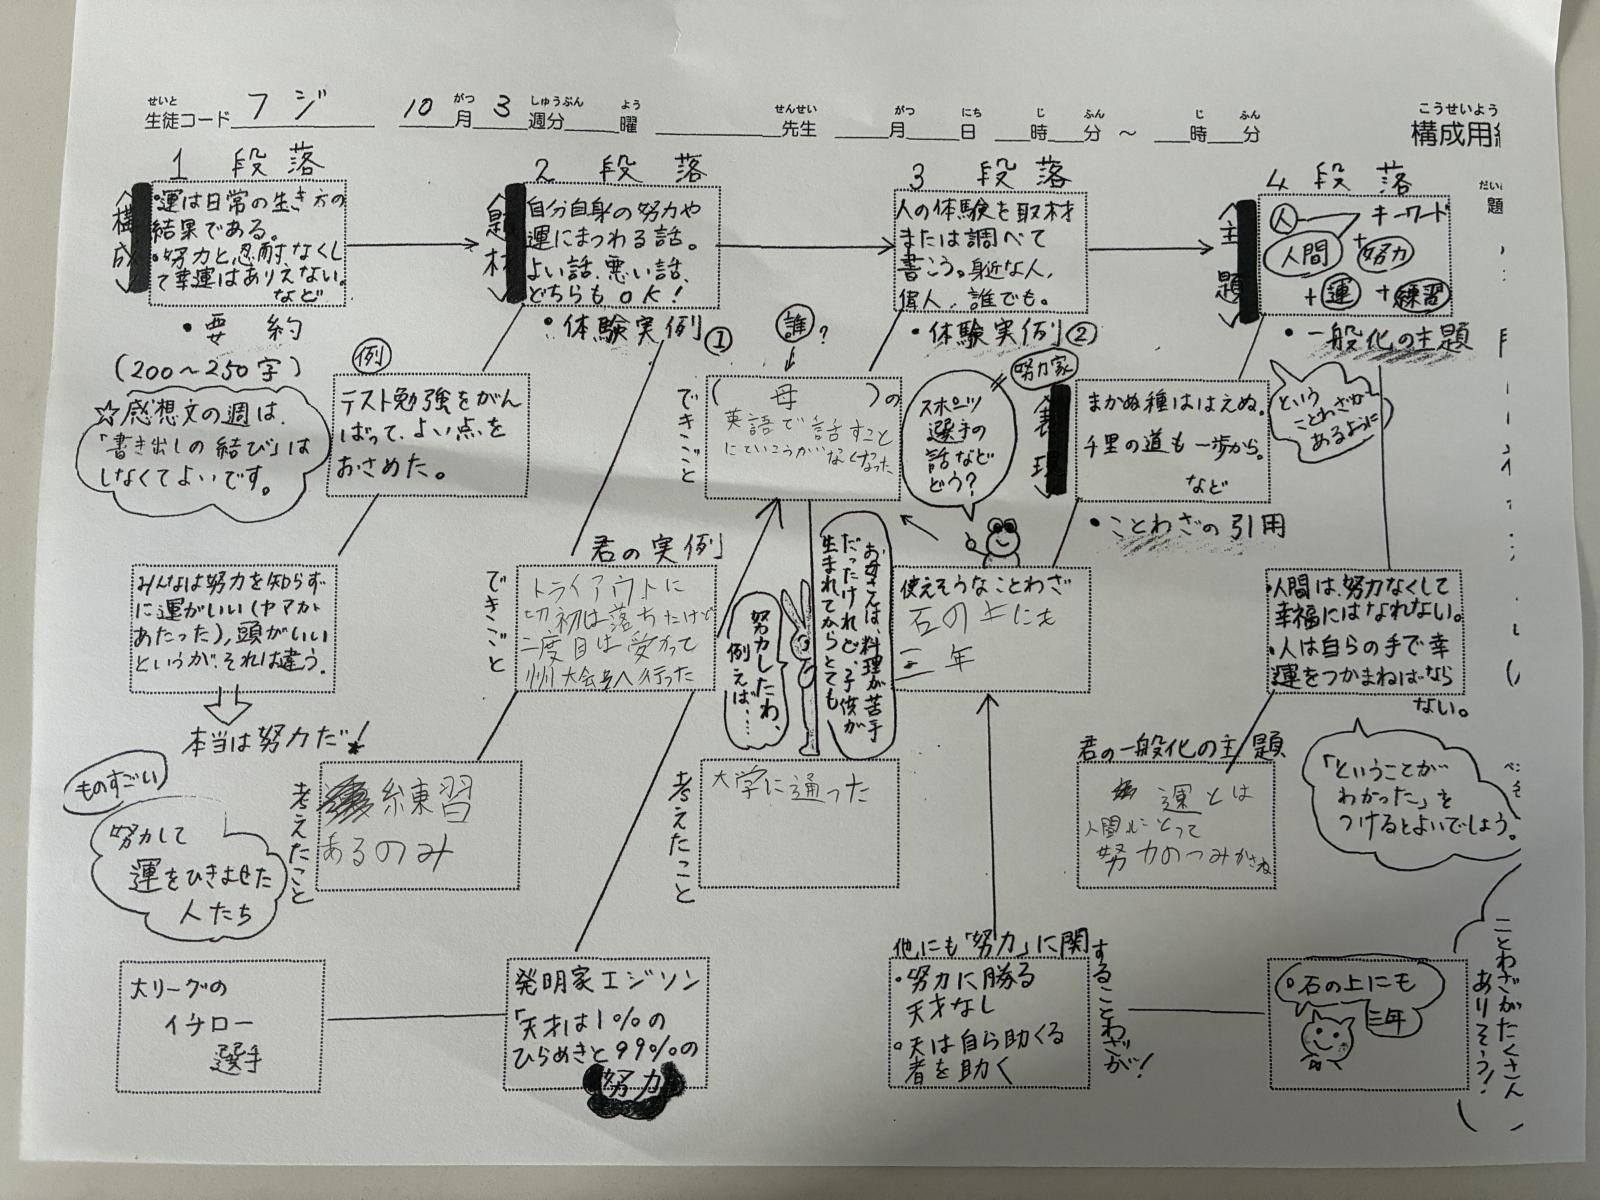 せいと がつ しゅうぶん よう せんせい がつ にち じ ふん じ ふん こうせいよう
生徒コード フジ 10月3週分 曜 先生 月 日 時 分 ～ 時 分 構成用
だい
題
1 段落
〈構成〉
・運は日常の生き方の
結果である。
・努力と忍耐なくし
て幸運はありえない。
など
・要約
(200〜250字)
☆感想文の週は、
「書き出しの結び」は
しなくてよいです。
2 段落
〈題材〉
自分自身の努力や
運にまつわる話。
よい話、悪い話、
どちらもOK!
・体験実例①
例
テスト勉強をがん
ばって、よい点を
おさめた。
みんなは努力を知らず
に運がいい(ヤマが
あたった)、頭がいい
というが、それは違う。
本当は努力だ!
君の実例
できごと
トライアウトに
初は落ちたけど
二度目は受かって
州大会へ行った
考えたこと
練習
あるのみ
ものすごい
努力して
運をひきよせた
人たち
大リーグの
イチロー
選手
発明家エジソン
「天才は1%の
ひらめきと99%の
努力
3 段落
人の体験を取材
または調べて
書こう。身近な人、
偉人、誰でも。
・体験実例②
誰?
できごと
(母)の
英語で話すこと
にていこうがなくなった
スポーツ
選手の
話など
どう?
努力家
努力したわ、
例えば、…
お母さんは、料理が苦手
だったけれど、子供が
生まれてからとても
考えたこと
大学に通った
使えそうなことわざ
石の上にも
三年
他にも「努力」に関することわざが!
・努力に勝る
天才なし
・天は自ら助くる
者を助く
4 段落
〈主題〉
人 キーワード
人間+努力
+運+練習
・一般化の主題
〈表現〉
まかぬ種ははえぬ。
千里の道も一歩から。
など
・ことわざの引用
という
ことわざが
あるように
・人間は、努力なくして
幸福にはなれない。
・人は自らの手で幸
運をつかまねばなら
ない。
君の一般化の主題
運とは
人間にとって
努力のつみかさね
「ということが
わかった」を
つけるとよいでしょう。
・石の上にも
三年
ことわざがたくさん
ありそう!